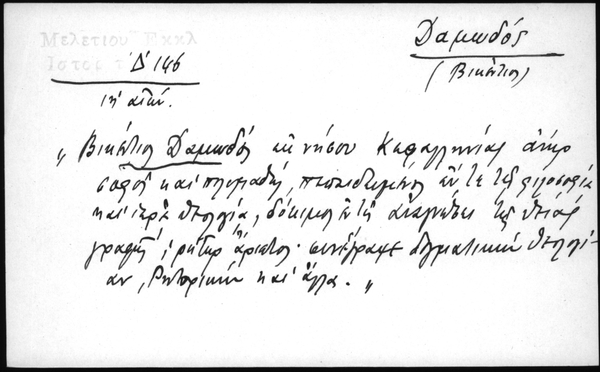 Μελετίου Εκκλ
Ιστορ τ
Δ' 146
ιη' αιών.
Δαμωδός
(Βικέντιος)
„ Βικέντιος Δαμωδός εκ νήσου Κεφαλληνίας ἀνήρ
σοφός καί πολυμαθής, πεπαιδευμένος ἔν τε τῇ φιλοσοφίᾳ
καί ἱερᾷ θεολογίᾳ, δόκιμος ἐν τῇ ἀναγνώσει τῆς θείας
γραφῆς, ρήτωρ ἄριστος. συνέγραψε δογματικήν θεολογί-
αν, Ρητορικήν καί ἄλλα. „